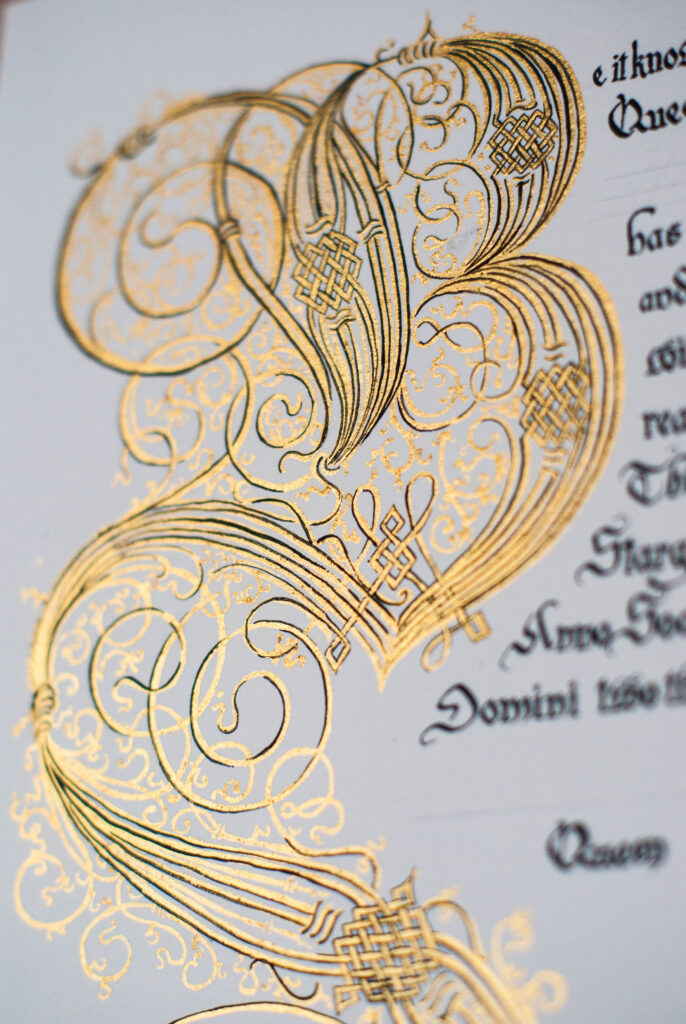 Be it kno
Que
has
and
wi
rea
Th
Starg
Anno So
Domini two th
Queen